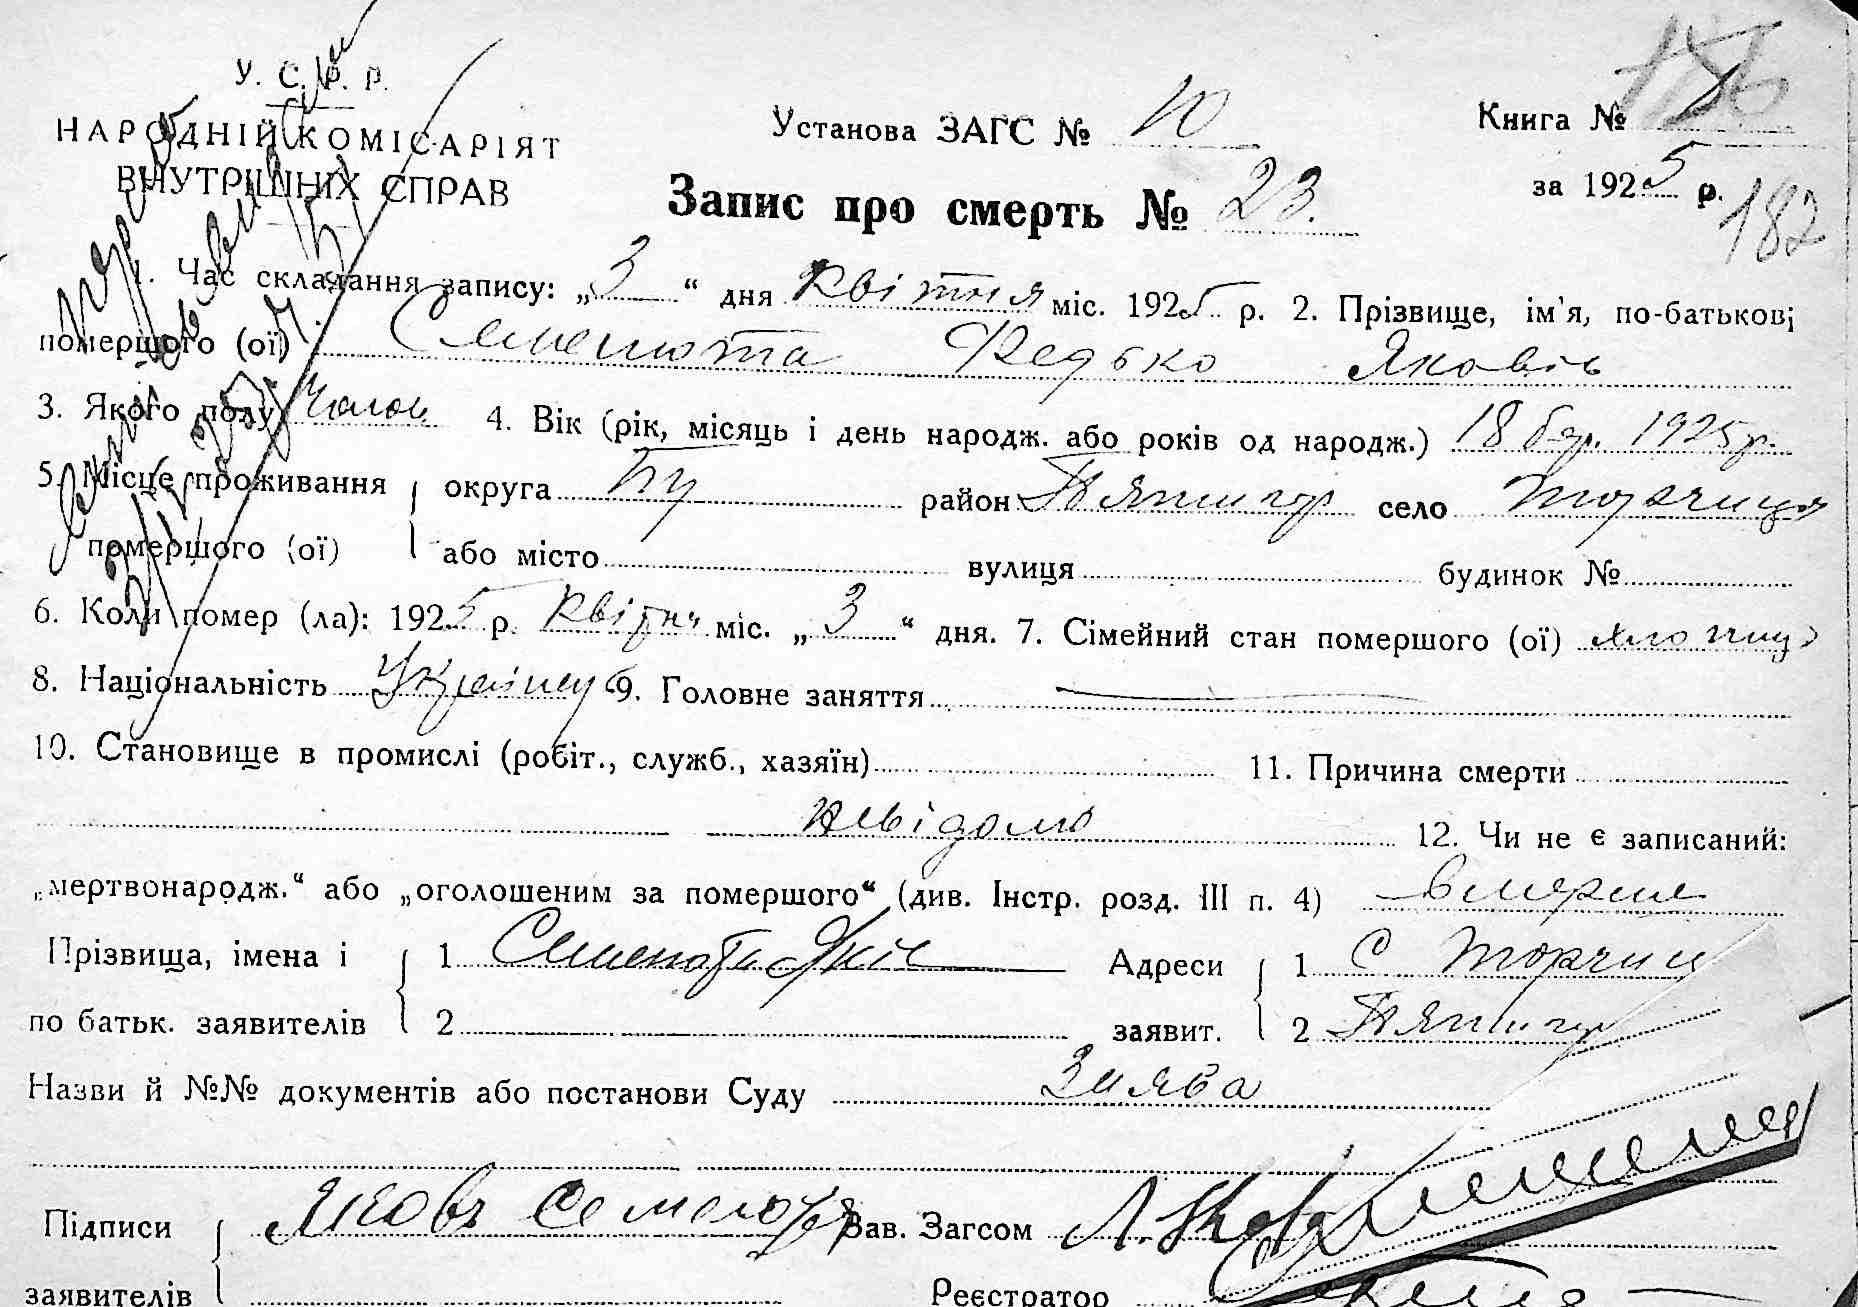 У. С. Р. Р.
НАРОДНІЙ КОМІСАРІЯТ
ВНУТРІШНІХ СПРАВ
Установа ЗАГС № 10
Книга № 1
186
за 1925 р.
182
Запис про смерть № 23.
1. Час складання запису: „3“ дня квітня міс. 1925 р. 2. Прізвище, ім'я, по-батькові
помершого (ої) Семенюта Федько Яковів
3. Якого полу чолов. 4. Вік (рік, місяць і день народж. або років од народж.) 18 бер. 1925 р.
5. Місце проживання округа район Пятигор село Торчиця
помершого (ої) або місто вулиця будинок №
6. Коли помер (ла): 1925 р. квітня міс. „3“ дня. 7. Сімейний стан помершого (ої)
8. Національність 9. Головне заняття
10. Становище в промислі (робіт., служб., хазяїн) 11. Причина смерти
невідомо 12. Чи не є записаний:
„мертвонародж.“ або „оголошеним за помершого“ (див. Інстр. розд. III п. 4) вмерше
Прізвища, імена і 1 Семенюта Яків Адреси 1 С Торчиц
по батьк. заявителів 2 заявит. 2 Пятигор
Назви й №№ документів або постанови Суду Заява
Підписи Яковъ Семенюта Зав. Загсом
заявителів Реєстратор